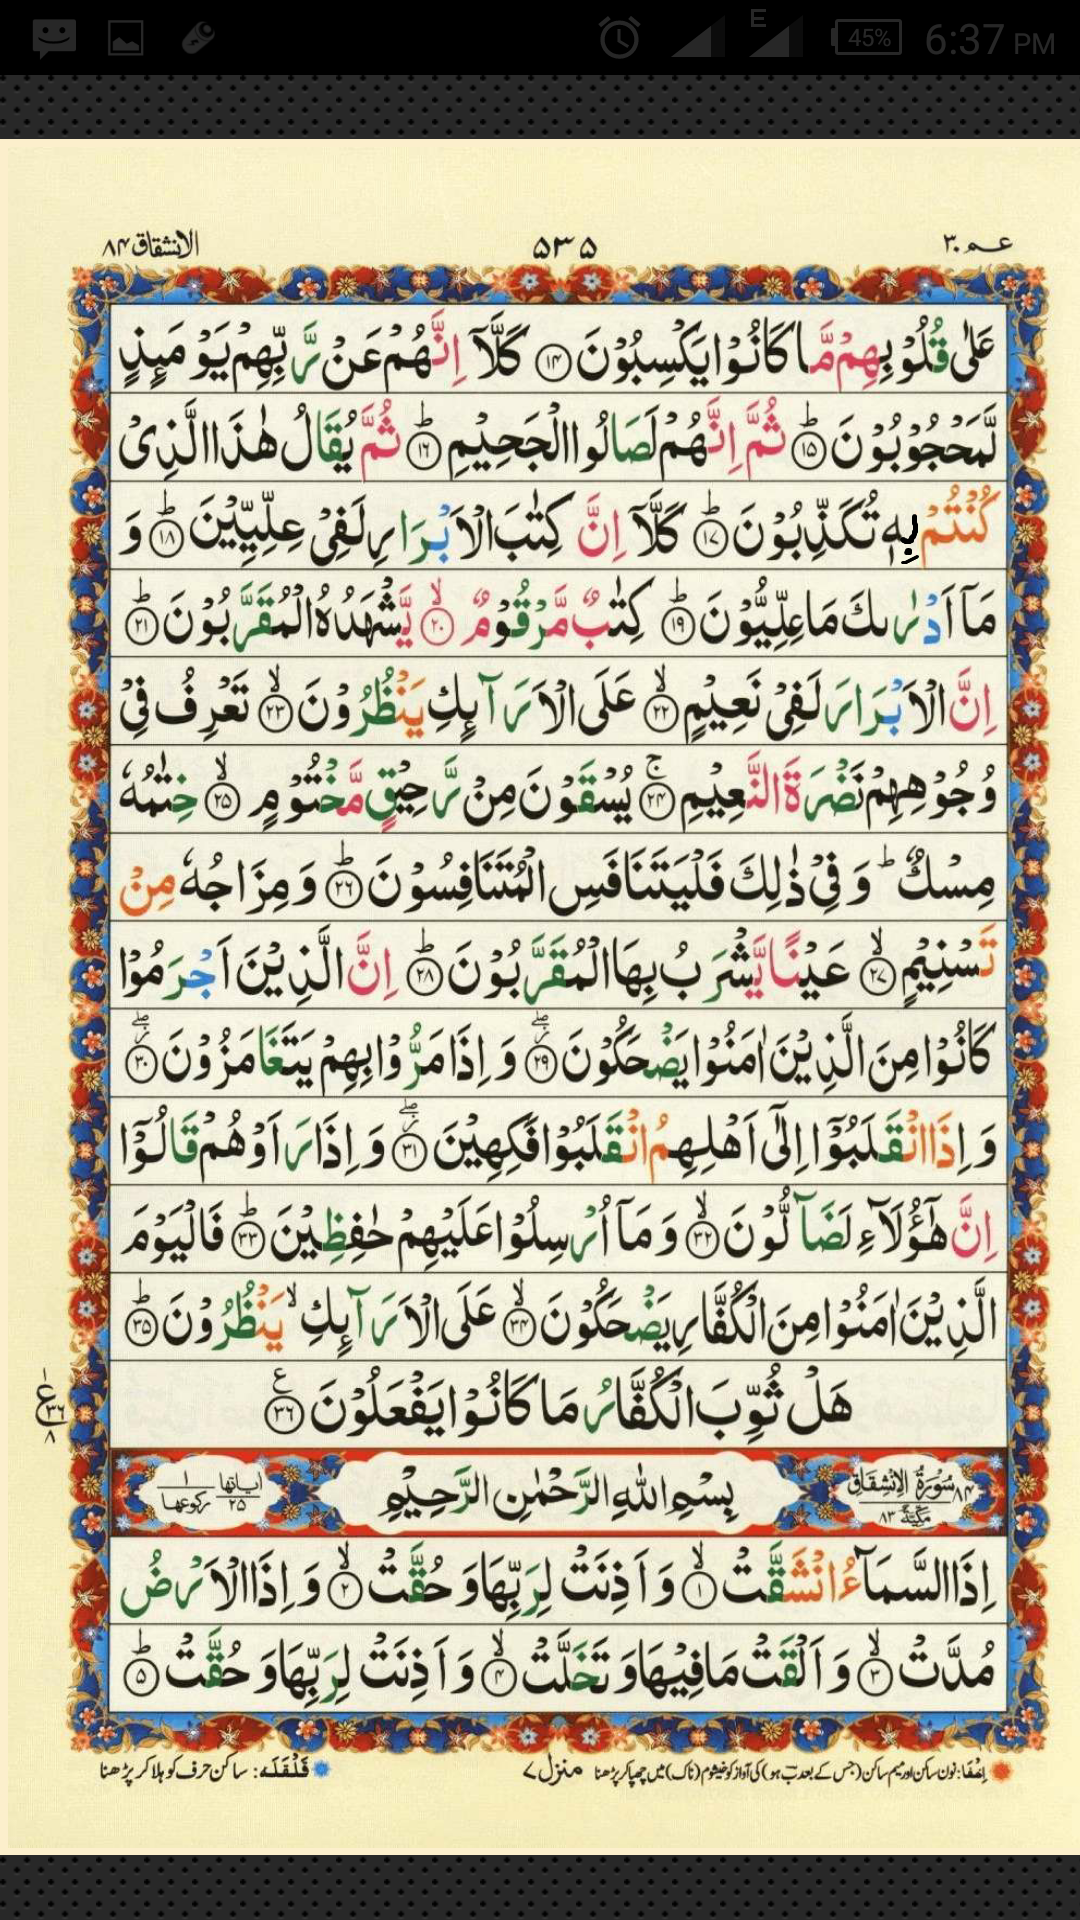 E 45% 6:37 PM
عـم ۳۰ ۵۳۵ الانشقاق ۸۴
عَلٰى قُلُوْبِهِمْ مَّا كَانُوْا يَكْسِبُوْنَ ۝۱۴ كَلَّاۤ اِنَّهُمْ عَنْ رَّبِّهِمْ يَوْمَىِٕذٍ
لَّمَحْجُوْبُوْنَؕ ۝۱۵ ثُمَّ اِنَّهُمْ لَصَالُوا الْجَحِيْمِؕ ۝۱۶ ثُمَّ يُقَالُ هٰذَا الَّذِىْ
كُنْتُمْ بِهٖ تُكَذِّبُوْنَؕ ۝۱۷ كَلَّاۤ اِنَّ كِتٰبَ الْاَبْرَارِ لَفِىْ عِلِّيِّيْنَؕ ۝۱۸ وَ
مَاۤ اَدْرٰىكَ مَا عِلِّيُّوْنَؕ ۝۱۹ كِتٰبٌ مَّرْقُوْمٌۙ ۝۲۰ يَّشْهَدُهُ الْمُقَرَّبُوْنَؕ ۝۲۱
اِنَّ الْاَبْرَارَ لَفِىْ نَعِيْمٍۙ ۝۲۲ عَلَى الْاَرَآىِٕكِ يَنْظُرُوْنَۙ ۝۲۳ تَعْرِفُ فِىْ
وُجُوْهِهِمْ نَضْرَةَ النَّعِيْمِۚ ۝۲۴ يُسْقَوْنَ مِنْ رَّحِيْقٍ مَّخْتُوْمٍۙ ۝۲۵ خِتٰمُهٗ
مِسْكٌؕ وَ فِىْ ذٰلِكَ فَلْيَتَنَافَسِ الْمُتَنَافِسُوْنَؕ ۝۲۶ وَ مِزَاجُهٗ مِنْ
تَسْنِيْمٍۙ ۝۲۷ عَيْنًا يَّشْرَبُ بِهَا الْمُقَرَّبُوْنَؕ ۝۲۸ اِنَّ الَّذِيْنَ اَجْرَمُوْا
كَانُوْا مِنَ الَّذِيْنَ اٰمَنُوْا يَضْحَكُوْنَۖ ۝۲۹ وَ اِذَا مَرُّوْا بِهِمْ يَتَغَامَزُوْنَۖ ۝۳۰
وَ اِذَا انْقَلَبُوْۤا اِلٰۤى اَهْلِهِمُ انْقَلَبُوْا فَكِهِيْنَۖ ۝۳۱ وَ اِذَا رَاَوْهُمْ قَالُوْۤا
اِنَّ هٰۤؤُلَآءِ لَضَآلُّوْنَۙ ۝۳۲ وَ مَاۤ اُرْسِلُوْا عَلَيْهِمْ حٰفِظِيْنَؕ ۝۳۳ فَالْيَوْمَ
الَّذِيْنَ اٰمَنُوْا مِنَ الْكُفَّارِ يَضْحَكُوْنَۙ ۝۳۴ عَلَى الْاَرَآىِٕكِۙ يَنْظُرُوْنَؕ ۝۳۵
هَلْ ثُوِّبَ الْكُفَّارُ مَا كَانُوْا يَفْعَلُوْنَ ۝۳۶
۱ ع ۳۶ ۸
۸۴ سُوْرَةُ الْاِنْشِقَاقِ مَكِّيَّةٌ ۸۳ بِسْمِ اللّٰهِ الرَّحْمٰنِ الرَّحِيْمِ اٰيَاتُهَا ۲۵ رُكُوْعُهَا ۱
اِذَا السَّمَآءُ انْشَقَّتْۙ ۝۱ وَ اَذِنَتْ لِرَبِّهَا وَ حُقَّتْۙ ۝۲ وَ اِذَا الْاَرْضُ
مُدَّتْۙ ۝۳ وَ اَلْقَتْ مَا فِيْهَا وَ تَخَلَّتْۙ ۝۴ وَ اَذِنَتْ لِرَبِّهَا وَ حُقَّتْؕ ۝۵
اِخْفَا: نون ساکن اور میم ساکن (جس کے بعد ب ہو) کی آواز کو خیشوم (ناک) میں چھپا کر پڑھنا منزل ۷ قَلْقَلَه: ساکن حرف کو ہلا کر پڑھنا